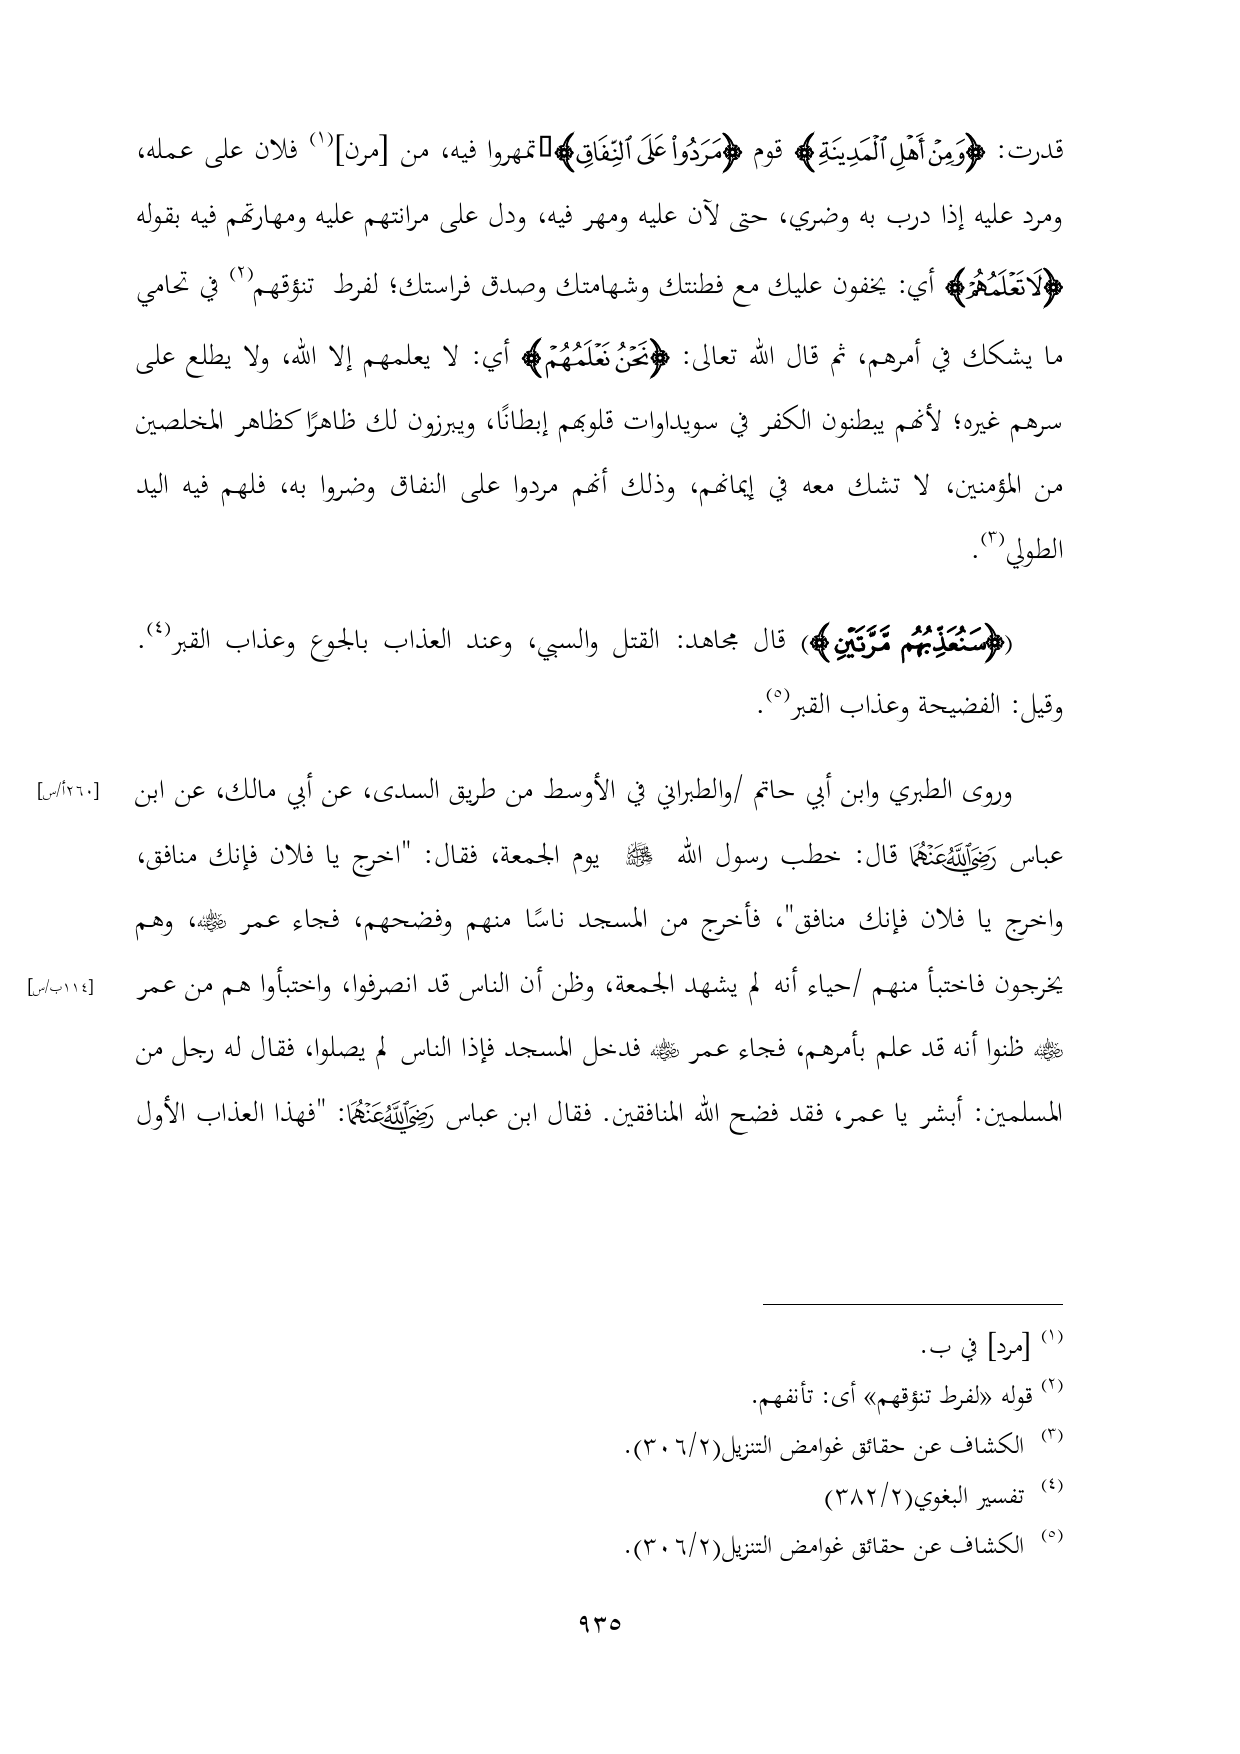 قدرت: ﴿وَمِنۡ أَهۡلِ ٱلۡمَدِينَةِ﴾ قوم ﴿مَرَدُواْ عَلَى ٱلنِّفَاقِ﴾ تمهروا فيه، من [مرن](١) فلان على عمله،
ومرد عليه إذا درب به وضري، حتى لآن عليه ومهر فيه، ودل على مرانتهم عليه ومهارتهم فيه بقوله
﴿لَا تَعۡلَمُهُمۡ﴾ أي: يخفون عليك مع فطنتك وشهامتك وصدق فراستك؛ لفرط تنؤقهم(٢) في تحامي
ما يشكك في أمرهم، ثم قال الله تعالى: ﴿نَحۡنُ نَعۡلَمُهُمۡ﴾ أي: لا يعلمهم إلا الله، ولا يطلع على
سرهم غيره؛ لأنهم يبطنون الكفر في سويداوات قلوبهم إبطانًا، ويبرزون لك ظاهرًا كظاهر المخلصين
من المؤمنين، لا تشك معه في إيمانهم، وذلك أنهم مردوا على النفاق وضروا به، فلهم فيه اليد
الطولي(٣).
(﴿سَنُعَذِّبُهُم مَّرَّتَيۡنِ﴾) قال مجاهد: القتل والسبي، وعند العذاب بالجوع وعذاب القبر(٤).
وقيل: الفضيحة وعذاب القبر(٥).
وروى الطبري وابن أبي حاتم /والطبراني في الأوسط من طريق السدى، عن أبي مالك، عن ابن [٢٦٠أ/س]
عباس رَضِيَ ٱللَّهُ عَنۡهُمَا قال: خطب رسول الله ﷺ يوم الجمعة، فقال: "اخرج يا فلان فإنك منافق،
واخرج يا فلان فإنك منافق"، فأخرج من المسجد ناسًا منهم وفضحهم، فجاء عمر رضي الله عنه، وهم
يخرجون فاختبأ منهم /حياء أنه لم يشهد الجمعة، وظن أن الناس قد انصرفوا، واختبأوا هم من عمر [١١٤ب/س]
رضي الله عنه ظنوا أنه قد علم بأمرهم، فجاء عمر رضي الله عنه فدخل المسجد فإذا الناس لم يصلوا، فقال له رجل من
المسلمين: أبشر يا عمر، فقد فضح الله المنافقين. فقال ابن عباس رَضِيَ ٱللَّهُ عَنۡهُمَا: "فهذا العذاب الأول
(١) [مرد] في ب.
(٢) قوله «لفرط تنؤقهم» أى: تأنفهم.
(٣) الكشاف عن حقائق غوامض التنزيل(٣٠٦/٢).
(٤) تفسير البغوي(٣٨٢/٢)
(٥) الكشاف عن حقائق غوامض التنزيل(٣٠٦/٢).
٩٣٥